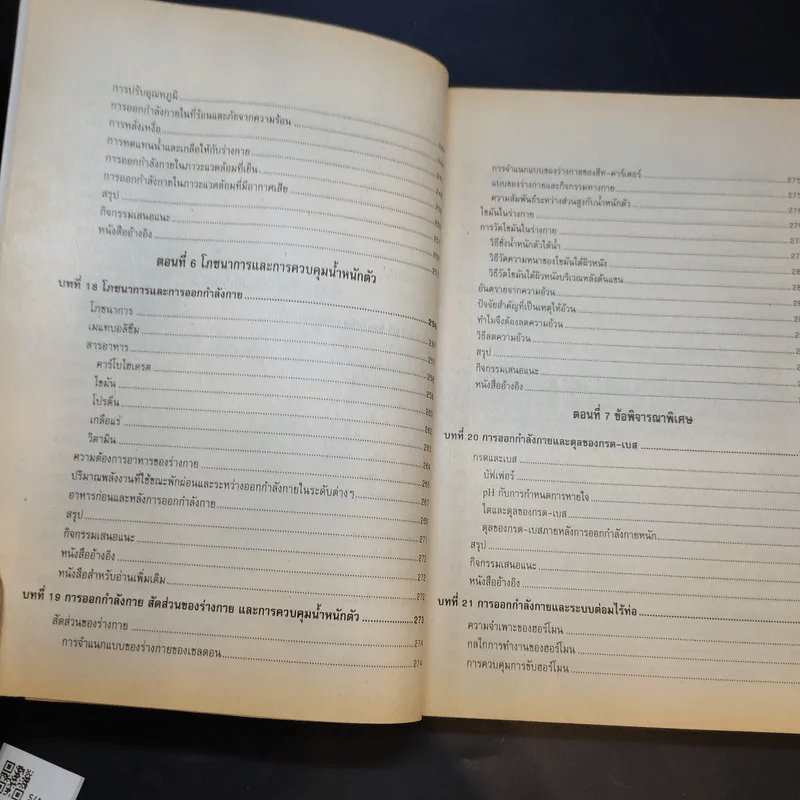 การปรับอุณหภูมิ
การออกกำลังกายในที่ร้อนและภัยจากความร้อน
การหลั่งเหงื่อ
การทดแทนน้ำและเกลือให้กับร่างกาย
การออกกำลังกายในภาวะแวดล้อมที่เย็น
การออกกำลังกายในภาวะแวดล้อมที่มีอากาศเสีย
สรุป
กิจกรรมเสนอแนะ
หนังสืออ้างอิง
ตอนที่ 6 โภชนาการและการควบคุมน้ำหนักตัว
บทที่ 18 โภชนาการและการออกกำลังกาย
โภชนาการ
เมแทบอลิซึม
สารอาหาร
คาร์โบไฮเดรต
ไขมัน
โปรตีน
เกลือแร่ 262
วิตามิน 263
ความต้องการอาหารของร่างกาย 264
ปริมาณพลังงานที่ใช้ขณะพักผ่อนและระหว่างออกกำลังกายในระดับต่างๆ 267
อาหารก่อนและหลังการออกกำลังกาย
สรุป 271
กิจกรรมเสนอแนะ 272
หนังสืออ้างอิง 272
หนังสือสำหรับอ่านเพิ่มเติม 272
บทที่ 19 การออกกำลังกาย สัดส่วนของร่างกาย และการควบคุมน้ำหนักตัว 273
สัดส่วนของร่างกาย 274
การจำแนกแบบของร่างกายของเชลดอน 274
การจำแนกแบบของร่างกายของฮีท-คาร์เตอร์ 275
แบบของร่างกายและกิจกรรมทางกาย
ความสัมพันธ์ระหว่างส่วนสูงกับน้ำหนักตัว
ไขมันในร่างกาย
การวัดไขมันในร่างกาย
วิธีชั่งน้ำหนักตัวใต้น้ำ
วิธีวัดความหนาของไขมันใต้ผิวหนัง
วิธีวัดไขมันใต้ผิวหนังบริเวณหลังต้นแขน
อันตรายจากความอ้วน
ปัจจัยสำคัญที่เป็นเหตุให้อ้วน
ทำไมจึงต้องลดความอ้วน
วิธีลดความอ้วน
สรุป
กิจกรรมเสนอแนะ
หนังสืออ้างอิง
ตอนที่ 7 ข้อพิจารณาพิเศษ
บทที่ 20 การออกกำลังกายและดุลของกรด-เบส
กรดและเบส
บัฟเฟอร์
pH กับการกำหนดการหายใจ
ไตและดุลของกรด-เบส
ดุลของกรด-เบสภายหลังการออกกำลังกายหนัก
สรุป
กิจกรรมเสนอแนะ
หนังสืออ้างอิง
บทที่ 21 การออกกำลังกายและระบบต่อมไร้ท่อ
ความจำเพาะของฮอร์โมน
กลไกการทำงานของฮอร์โมน
การควบคุมการขับฮอร์โมน